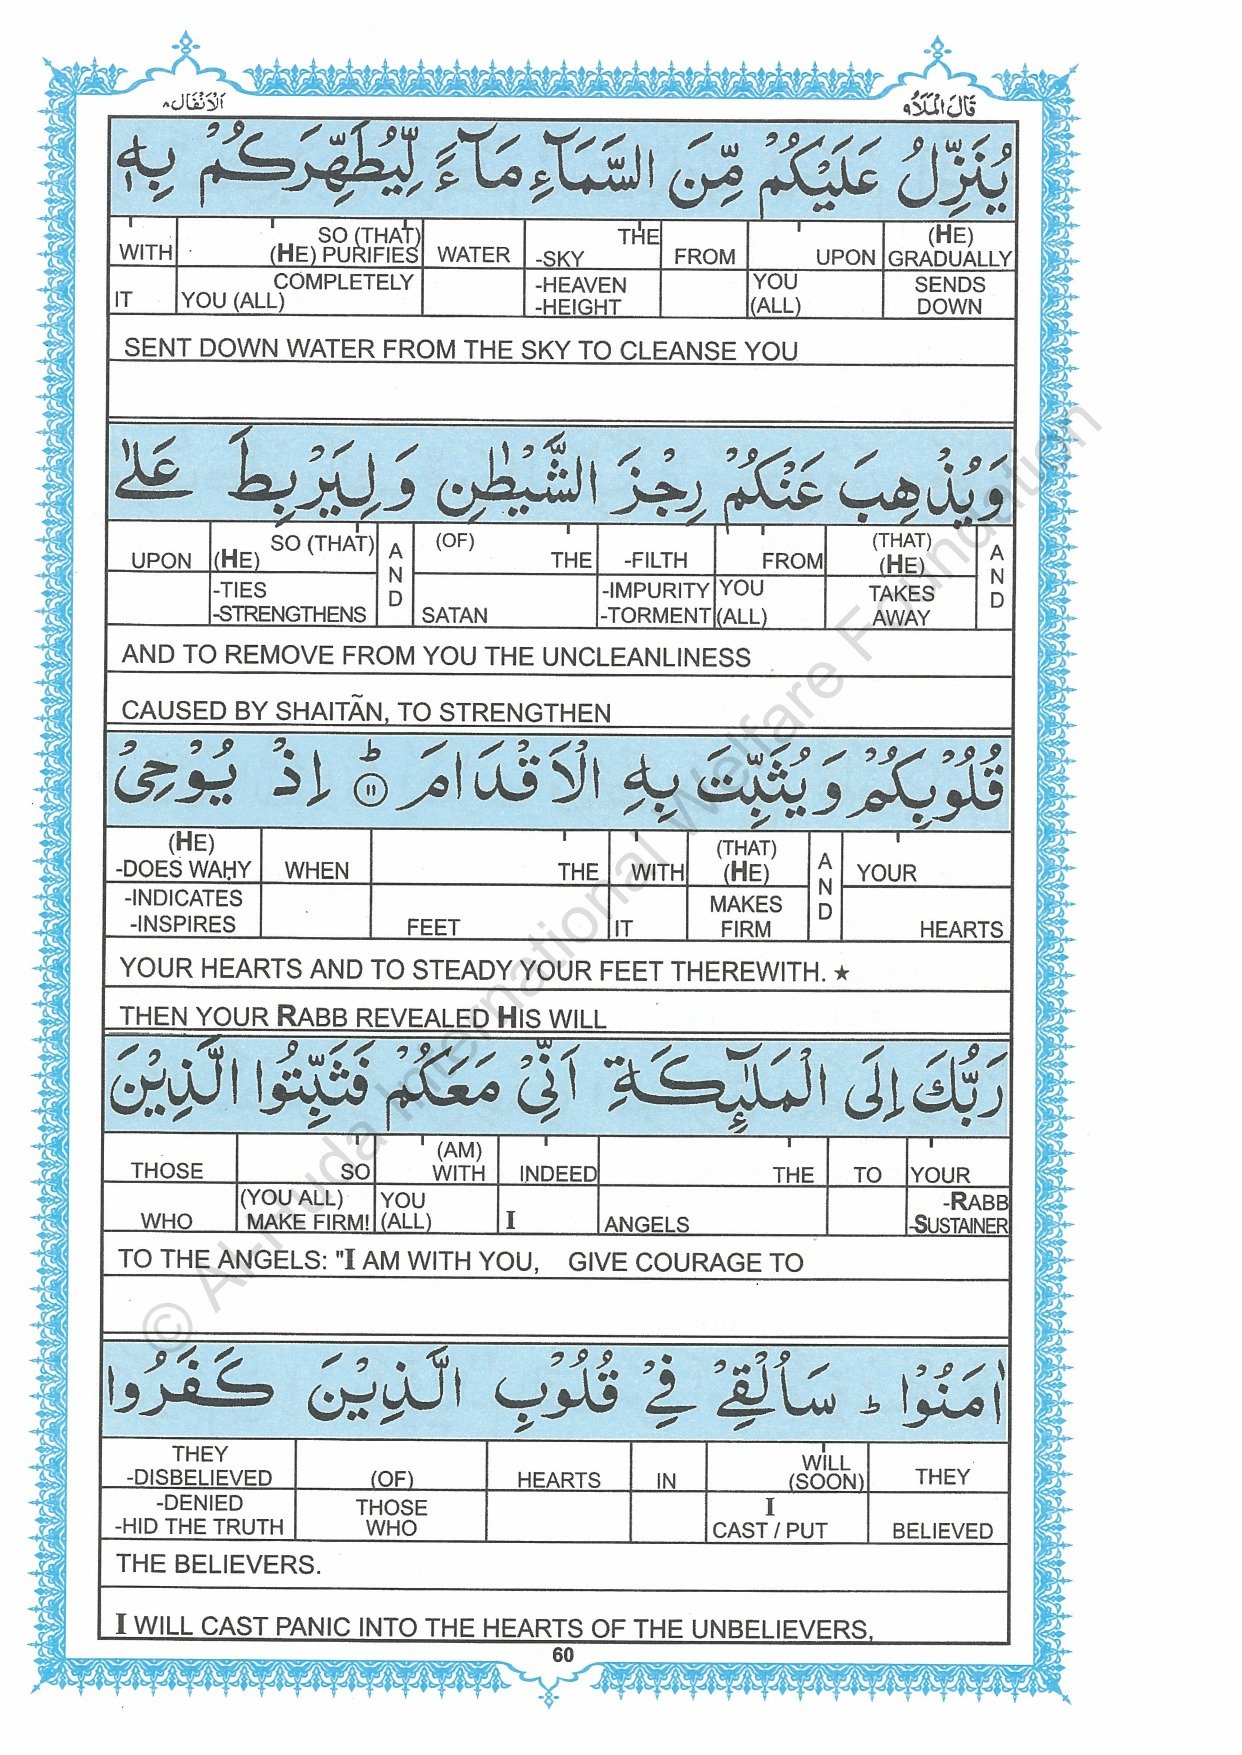 الانفال ٨
قال الملا ٩
يُنَزِّلُ عَلَيْكُمْ مِّنَ السَّمَآءِ مَآءً لِّيُطَهِّرَكُمْ بِهٖ
WITH SO (THAT) (HE) PURIFIES WATER THE -SKY FROM UPON (HE) GRADUALLY
IT COMPLETELY YOU (ALL) -HEAVEN -HEIGHT YOU (ALL) SENDS DOWN
SENT DOWN WATER FROM THE SKY TO CLEANSE YOU
وَيُذْهِبَ عَنْكُمْ رِجْزَ الشَّيْطٰنِ وَلِيَرْبِطَ عَلٰى
UPON SO (THAT) (HE) AND (OF) THE -FILTH FROM (THAT) (HE) AND
-TIES -STRENGTHENS SATAN -IMPURITY -TORMENT YOU (ALL) TAKES AWAY
AND TO REMOVE FROM YOU THE UNCLEANLINESS
CAUSED BY SHAITÃN, TO STRENGTHEN
قُلُوْبِكُمْ وَيُثَبِّتَ بِهِ الْاَقْدَامَ ؕ ١١ اِذْ يُوْحِىْ
(HE) -DOES WAḤY WHEN THE WITH (THAT) (HE) AND YOUR
-INDICATES -INSPIRES FEET IT MAKES FIRM HEARTS
YOUR HEARTS AND TO STEADY YOUR FEET THEREWITH. ★
THEN YOUR RABB REVEALED HIS WILL
رَبُّكَ اِلَى الْمَلٰٓئِكَةِ اَنِّىْ مَعَكُمْ فَثَبِّتُوا الَّذِيْنَ
THOSE SO (AM) WITH INDEED THE TO YOUR
WHO (YOU ALL) MAKE FIRM! YOU (ALL) I ANGELS -RABB -SUSTAINER
TO THE ANGELS: "I AM WITH YOU, GIVE COURAGE TO
اٰمَنُوْا ؕ سَاُلْقِىْ فِىْ قُلُوْبِ الَّذِيْنَ كَفَرُوا
THEY -DISBELIEVED (OF) HEARTS IN WILL (SOON) THEY
-DENIED -HID THE TRUTH THOSE WHO I CAST / PUT BELIEVED
THE BELIEVERS.
I WILL CAST PANIC INTO THE HEARTS OF THE UNBELIEVERS,
60
© Al-Huda International Welfare Foundation